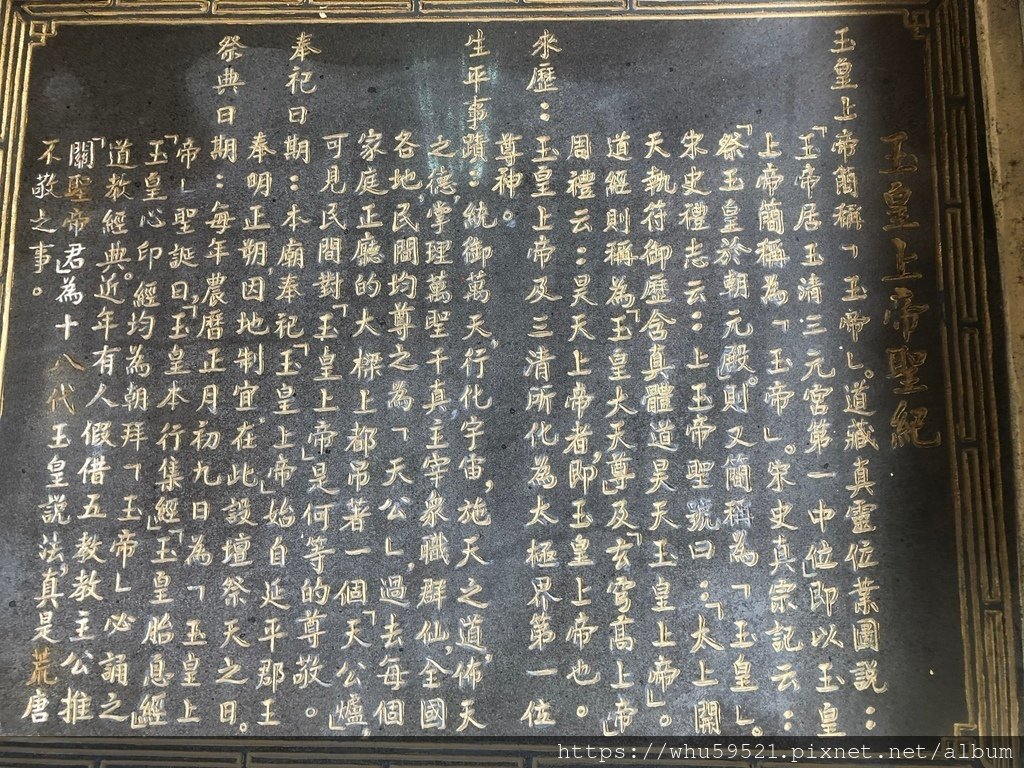 玉皇上帝聖紀
玉皇上帝簡稱「玉帝」。道藏真靈位業圖說：
「玉帝居玉清三元宮第一中位」即以玉皇
上帝簡稱為「玉帝」。宋史真宗記云：
「祭玉皇於朝元殿」。則又簡稱為「玉皇」。
宋史禮志云：上玉帝聖號曰：「太上開
天執符御歷含真體道昊天玉皇上帝」。
道經則稱為「玉皇大天尊」及「玄穹高上帝」
周禮云：昊天上帝者，即玉皇上帝也。
來歷：玉皇上帝及三清所化為太極界第一位
尊神。
生平事蹟：統御萬天，行化宇宙，施天之道，佈天
之德，掌理萬聖千真主宰衆職群仙，全國
各地民間均尊之為「天公」，過去每個
家庭正廳的大樑上都吊著一個「天公爐」，
可見民間對「玉皇上帝」是何等的尊敬。
奉祀日期：本廟奉祀「玉皇上帝」始自延平郡王
奉明正朔，因地制宜在此設壇祭天之日。
祭典日期：每年農曆正月初九日為「玉皇上
帝」聖誕日，「玉皇本行集經」「玉皇胎息經」
「玉皇心印」經均為朝拜「玉帝」必誦之
道教經典。近年有人假借五教教主公推
「關聖帝君」為十八代玉皇說法，真是荒唐
不敬之事。
https://whu59521.pixnet.net/album